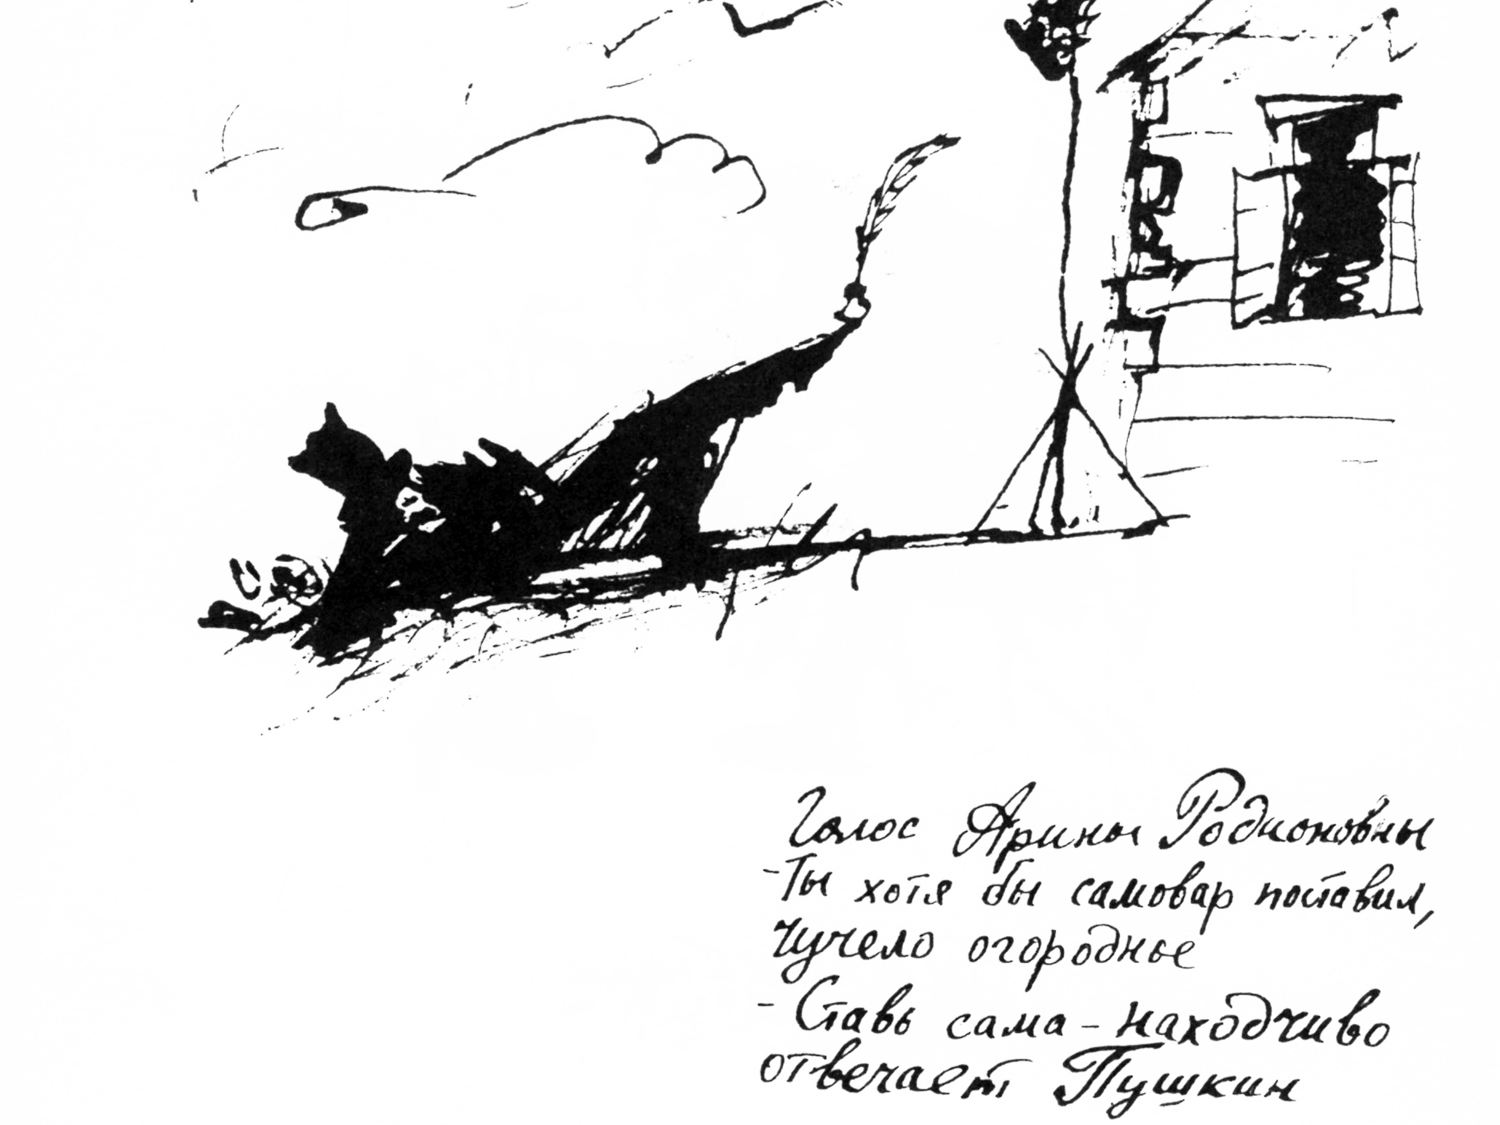 Голос Арины Родионовны
- Ты хотя бы самовар поставил,
чучело огородное
- Ставь сама - находчиво
отвечает Пушкин